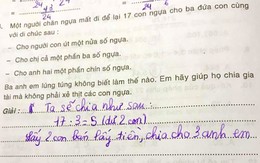 24 24 24
Một người chăn ngựa mất đi để lại 17 con ngựa cho ba đứa con cùng
với di chúc sau :
- Cho người con út một nửa số ngựa.
- Cho chị cả một phần ba số ngựa.
- Cho anh hai một phần chín số ngựa.
Ba anh em lúng túng không biết làm thế nào. Em hãy giúp họ chia gia
tài mà không phải xẻ thịt các con ngựa.
Giải : Ta sẽ chia như sau :
17 : 3 = 5 (dư 2 con)
Lấy 2 con bán lấy tiền, chia cho 3 anh em...